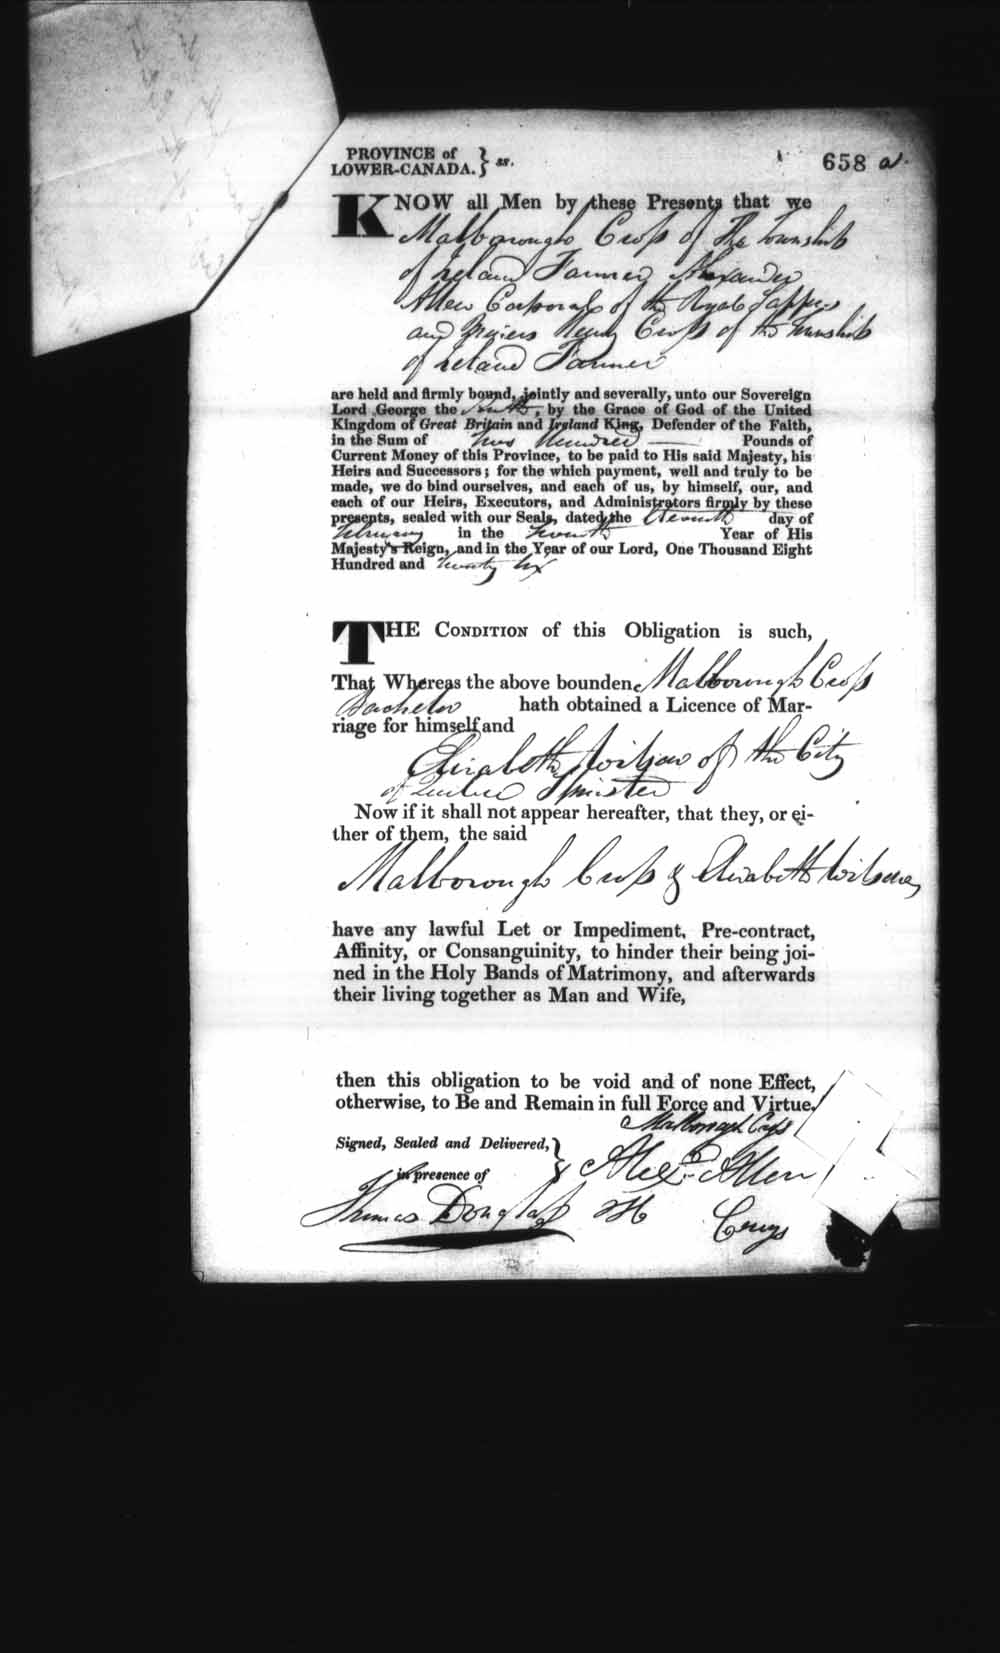 PROVINCE of
LOWER-CANADA. } ss.
658 a.
KNOW all Men by these Presents that we
Malborough Cross of The Township
of Ireland Farmer Alexander
Allen Corporal of the Royal Sappers
and Miners Henry Cross of the Township
of Ireland Farmer
are held and firmly bound, jointly and severally, unto our Sovereign
Lord George the , by the Grace of God of the United
Kingdom of Great Britain and Ireland King, Defender of the Faith,
in the Sum of Two Hundred Pounds of
Current Money of this Province, to be paid to His said Majesty, his
Heirs and Successors; for the which payment, well and truly to be
made, we do bind ourselves, and each of us, by himself, our, and
each of our Heirs, Executors, and Administrators firmly by these
presents, sealed with our Seals, dated the day of
February in the Year of His
Majesty's Reign, and in the Year of our Lord, One Thousand Eight
Hundred and twenty six
THE CONDITION of this Obligation is such,
That Whereas the above bounden Malborough Cross
Bachelor hath obtained a Licence of Mar-
riage for himself and
Elizabeth Wilson of the City
of Quebec Spinster
Now if it shall not appear hereafter, that they, or ei-
ther of them, the said
Malborough Cross & Elizabeth Wilson,
have any lawful Let or Impediment, Pre-contract,
Affinity, or Consanguinity, to hinder their being joi-
ned in the Holy Bands of Matrimony, and afterwards
their living together as Man and Wife,
then this obligation to be void and of none Effect,
otherwise, to Be and Remain in full Force and Virtue.
Signed, Sealed and Delivered, }
in presence of
Alexr Allen
Thomas Douglass